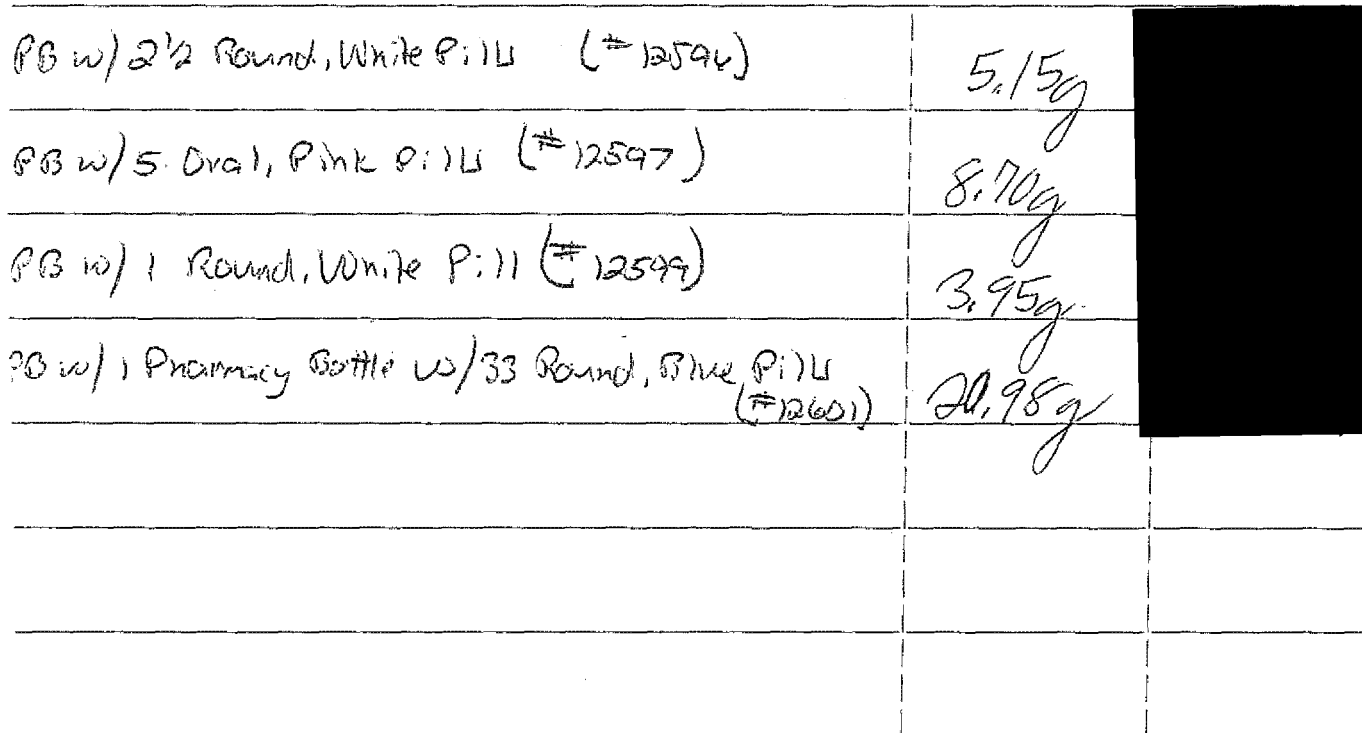 PB w/ 2 1/2 Round, White Pills (#12596) 5.15g
PB w/ 5 Oval, Pink Pills (#12597) 8.70g
PB w/ 1 Round, White Pill (#12599) 3.95g
PB w/ 1 Pharmacy Bottle w/ 33 Round, Blue Pills
(#12601)